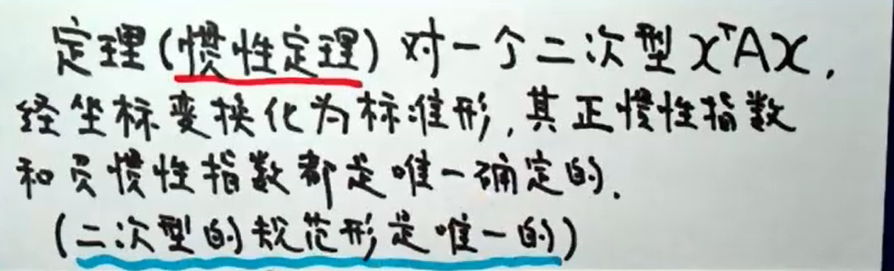 定理(惯性定理)对一个二次型 xᵀAx,
经坐标变换化为标准形,其正惯性指数
和负惯性指数都是唯一确定的.
(二次型的规范形是唯一的)